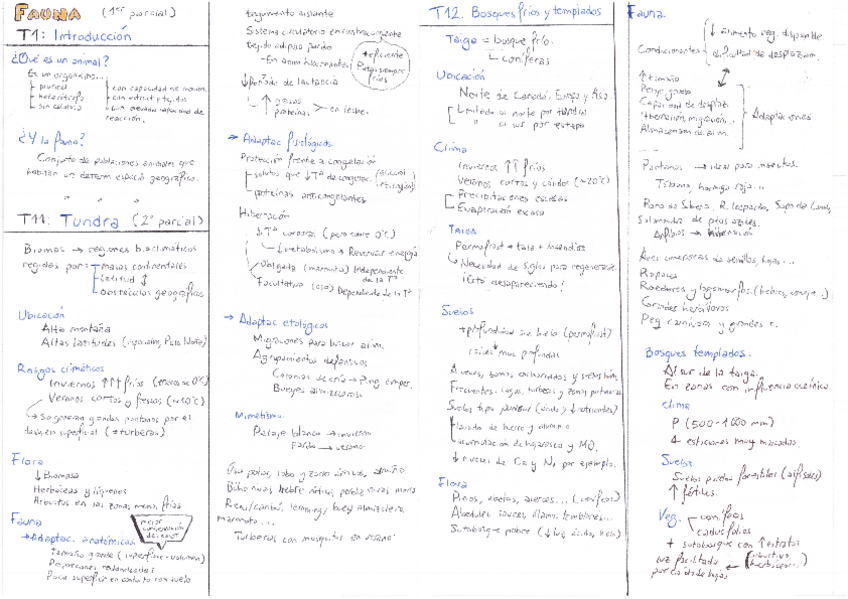 FAUNA (1er parcial)
T1: Introducción
¿Qué es un animal?
Es un organismo...
pluricel
heterótrofo
sin celulosa
con capacidad de movim.
con estruct y tejidos
con elevada capacidad de
reacción.
¿Y la fauna?
Conjunto de poblaciones animales que
habitan un determ espacio geográfico.
T11: Tundra (2º parcial)
Biomas → regiones bioclimáticas
regidas por:
masas continentales
latitud ↕
obstáculos geográficos
Ubicación
Alta montaña
Altas latitudes
Rasgos climáticos
Inviernos ↑↑↑ fríos (menos de 0ºC)
Veranos cortos y frescos (≈10ºC)
→ Se generan grandes pantanos por el
deshielo superficial (≠ turberas)
Flora
↓ Biomasa
Herbáceas y líquenes
Arbustos en las zonas menos frías
Fauna
→ Adaptac. anatómicas
mejor
conservación
de energ
Tamaño grande (superficie-volumen)
Proporciones redondeadas
Poca superfic en contacto con suelo
tegumento aislante
Sistema circulatorio en contracorriente
tejido adiposo pardo
- En anim hibernantes
+ eficiente
↓ Período de lactancia
↑ grasas
proteínas
en leche.
→ Adaptac fisiológicas
Protección frente a congelación
solutos que ↓ Tª de congelac.
proteínas anticongelantes
Hibernación
↓ Tª corporal (pero no 0ºC)
↓ metabolismo → Reservar energía
Obligada (marmota) Independiente
de la Tª
Facultativa (oso) Dependiente de la Tª
→ Adaptac etológicas
Migraciones para buscar alim.
Agrupamientos defensivos
Colonias de cría → Ping. emper.
Bueyes almizcleros
Mimetismo
Pelaje blanco → invierno
Pardo → verano
Oso polar, lobo y zorro árticos, armiño.
Búho nival, liebre ártica, perdiz nival
Reno/caribú, lemming, buey almizclero,
marmota...
Turberas con mosquitos en verano
T12. Bosques fríos y templados
Taiga = bosque frío.
coníferas
Ubicación
Norte de Canadá, Europa y Asia
Limitado al norte por tundra
" al sur por estepa
Clima
Inviernos ↑↑ fríos
Veranos cortos y cálidos (≈20ºC)
Precipitaciones escasas
Evaporación escasa
Taiga
Permafrost + tala + incendios
Necesidad de siglos para regenerarse
¡Está desapareciendo!
Suelos
+ profundidad sin hielo (permafrost)
raíces muy profundas
Frecuentes lagos, turberas y zonas pantanosas
Suelos tipo podsol (ácido y ↓ nutrientes)
lavado de hierro y aluminio
acumulación de hojarasca y MO.
↓ niveles de Ca y N, por ejemplo.
Flora
Pinos, abetos, alerces... (coníferas)
Abedules, sauces, álamos temblones...
Sotobosque pobre (↓ luz, ácido, hielo)
Fauna.
Condicionantes
↓ alimento veg. disponible
dificultad de desplazam.
↑ tamaño
Pelaje grueso
Capacidad de desplaz
Hibernación, migración...
Almacenam de alim.
Adaptaciones
Pantanos → ideal para insectos.
Tábano, hormiga roja...
Salamandra de ptos azules.
Anfibios → hibernación
Aves
Rapaces
Roedores y lagomorfos (liebres, conejos..)
Grandes herbívoros
Peq carnívoros y grandes c.
Bosques templados.
Al sur de la taiga.
En zonas con influencia oceánica
Clima
P (500-1000 mm)
4 estaciones muy marcadas.
Suelos
Suelos pardos forestales (alfisoles)
↑ fértiles.
Veg.
coníferas
caducifolios
+ sotobosque con ↑ estratos
luz facilitada
por caída de hojas
(arbustivo,
herbáceo...)